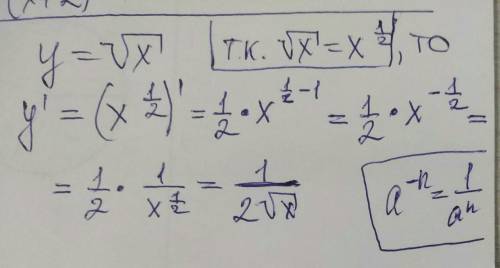 (x+2)
y = √x  т.к. √x = x^(1/2), то
y' = (x^(1/2))' = 1/2 · x^(1/2 - 1) = 1/2 · x^(-1/2) =
= 1/2 · 1/x^(1/2) = 1/(2√x)
a^(-n) = 1/a^n